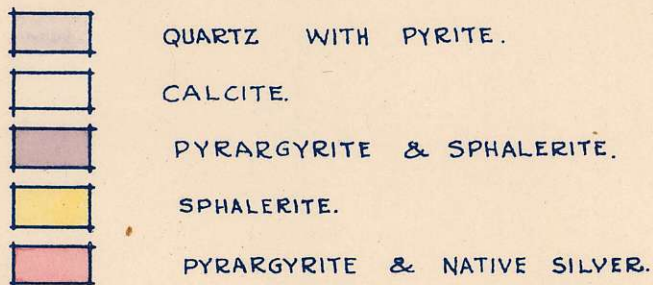 QUARTZ WITH PYRITE.
CALCITE.
PYRARGYRITE & SPHALERITE.
SPHALERITE.
PYRARGYRITE & NATIVE SILVER.